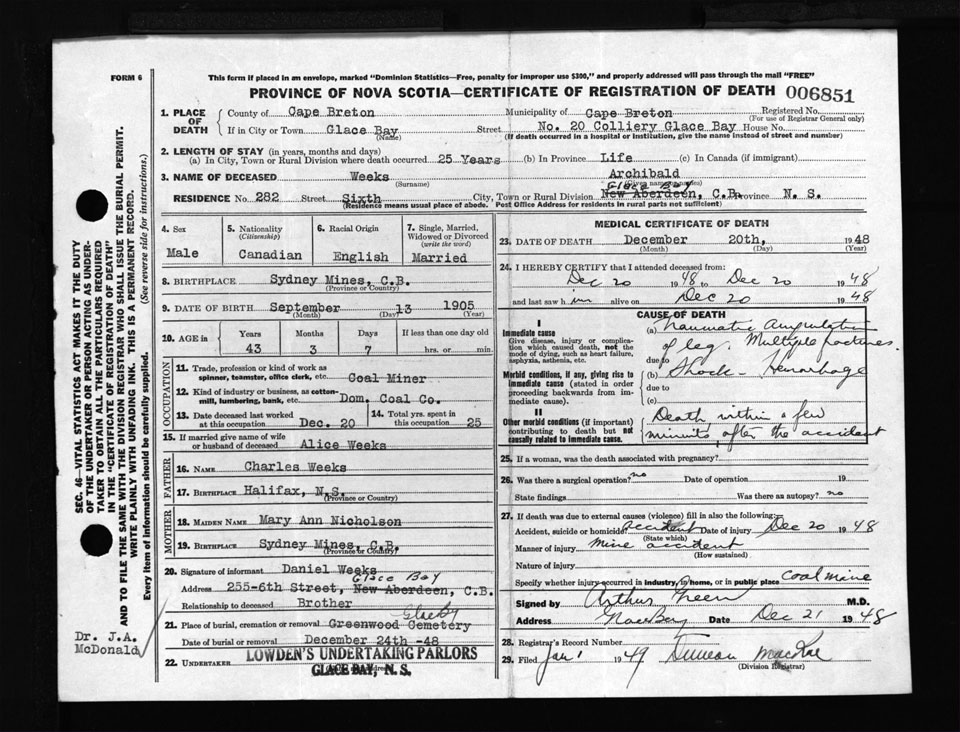 This form if placed in an envelope, marked "Dominion Statistics—Free, penalty for improper use $300," and properly addressed will pass through the mail "FREE"
FORM 6
PROVINCE OF NOVA SCOTIA—CERTIFICATE OF REGISTRATION OF DEATH 006851
SEC. 46—VITAL STATISTICS ACT MAKES IT THE DUTY
OF THE UNDERTAKER OR PERSON ACTING AS UNDER-
TAKER TO OBTAIN ALL THE PARTICULARS REQUIRED
IN THE "CERTIFICATE OF REGISTRATION OF DEATH"
AND TO FILE THE SAME WITH THE DIVISION REGISTRAR WHO SHALL ISSUE THE BURIAL PERMIT.
WRITE PLAINLY WITH UNFADING INK. THIS IS A PERMANENT RECORD.
Every item of information should be carefully supplied. (See reverse side for instructions.)
1. PLACE OF DEATH
County of Cape Breton Municipality of Cape Breton Registered No.
(For use of Registrar General only)
If in City or Town Glace Bay Street No. 20 Colliery Glace Bay House No.
(Name) (If death occurred in a hospital or institution, give the name instead of street and number)
2. LENGTH OF STAY (in years, months and days)
(a) In City, Town or Rural Division where death occurred 25 Years (b) In Province Life (c) In Canada (if immigrant)
3. NAME OF DECEASED Weeks Archibald
(Surname) (Given name or names)
Glace Bay
RESIDENCE No. 282 Street Sixth City, Town or Rural Division New Aberdeen, C.B. Province N. S.
(Residence means usual place of abode. Post Office Address for residents in rural parts not sufficient)
4. Sex
Male
5. Nationality
(Citizenship)
Canadian
6. Racial Origin
English
7. Single, Married, Widowed or Divorced
(write the word)
Married
8. BIRTHPLACE Sydney Mines, C.B.
(Province or Country)
9. DATE OF BIRTH September 13 1905
(Month) (Day) (Year)
10. AGE in Years Months Days If less than one day old
43 3 7 hrs. or min.
OCCUPATION
11. Trade, profession or kind of work as
spinner, teamster, office clerk, etc. Coal Miner
12. Kind of industry or business, as cotton-
mill, lumbering, bank, etc. Dom. Coal Co.
13. Date deceased last worked
at this occupation Dec. 20
14. Total yrs. spent in
this occupation 25
15. If married give name of wife
or husband of deceased Alice Weeks
FATHER
16. NAME Charles Weeks
17. BIRTHPLACE Halifax, N.S.
(Province or Country)
MOTHER
18. MAIDEN NAME Mary Ann Nicholson
19. BIRTHPLACE Sydney Mines, C.B.
(Province or Country)
20. Signature of informant Daniel Weeks
Glace Bay
Address 255-6th Street, New Aberdeen, C.B.
Relationship to deceased Brother
21. Place of burial, cremation or removal Greenwood Cemetery
Date of burial or removal December 24th -48
22. UNDERTAKER LOWDEN'S UNDERTAKING PARLORS
GLACE BAY, N. S.
Dr. J.A.
McDonald
MEDICAL CERTIFICATE OF DEATH
23. DATE OF DEATH December 20th, 1948
(Month) (Day) (Year)
24. I HEREBY CERTIFY that I attended deceased from:
Dec 20 1948 to Dec 20 1948
and last saw him alive on Dec 20 1948
CAUSE OF DEATH
I
Immediate cause
Give disease, injury or complica-
tion which caused death, not the
mode of dying, such as heart failure,
asphyxia, asthenia, etc.
(a) Traumatic Amputation
of leg. Multiple fractures.
due to
Morbid conditions, if any, giving rise to
immediate cause (stated in order
proceeding backwards from im-
mediate cause).
(b) Shock - Hemorhage
due to
(c)
II
Other morbid conditions (if important)
contributing to death but not
causally related to immediate cause.
Death within a few
minuits after the accident
25. If a woman, was the death associated with pregnancy?
26. Was there a surgical operation? no Date of operation 19
State findings Was there an autopsy? no
27. If death was due to external causes (violence) fill in also the following:
Accident, suicide or homicide? accident Date of injury Dec 20 1948
(State which)
Manner of injury mine accident
(How sustained)
Nature of injury
Specify whether injury occurred in industry, in home, or in public place coal mine
Signed by Arthur Green M.D.
Address Glace Bay Date Dec 21 1948
28. Registrar's Record Number
29. Filed Jan 1 1949 Duncan MacRae
(Division Registrar)